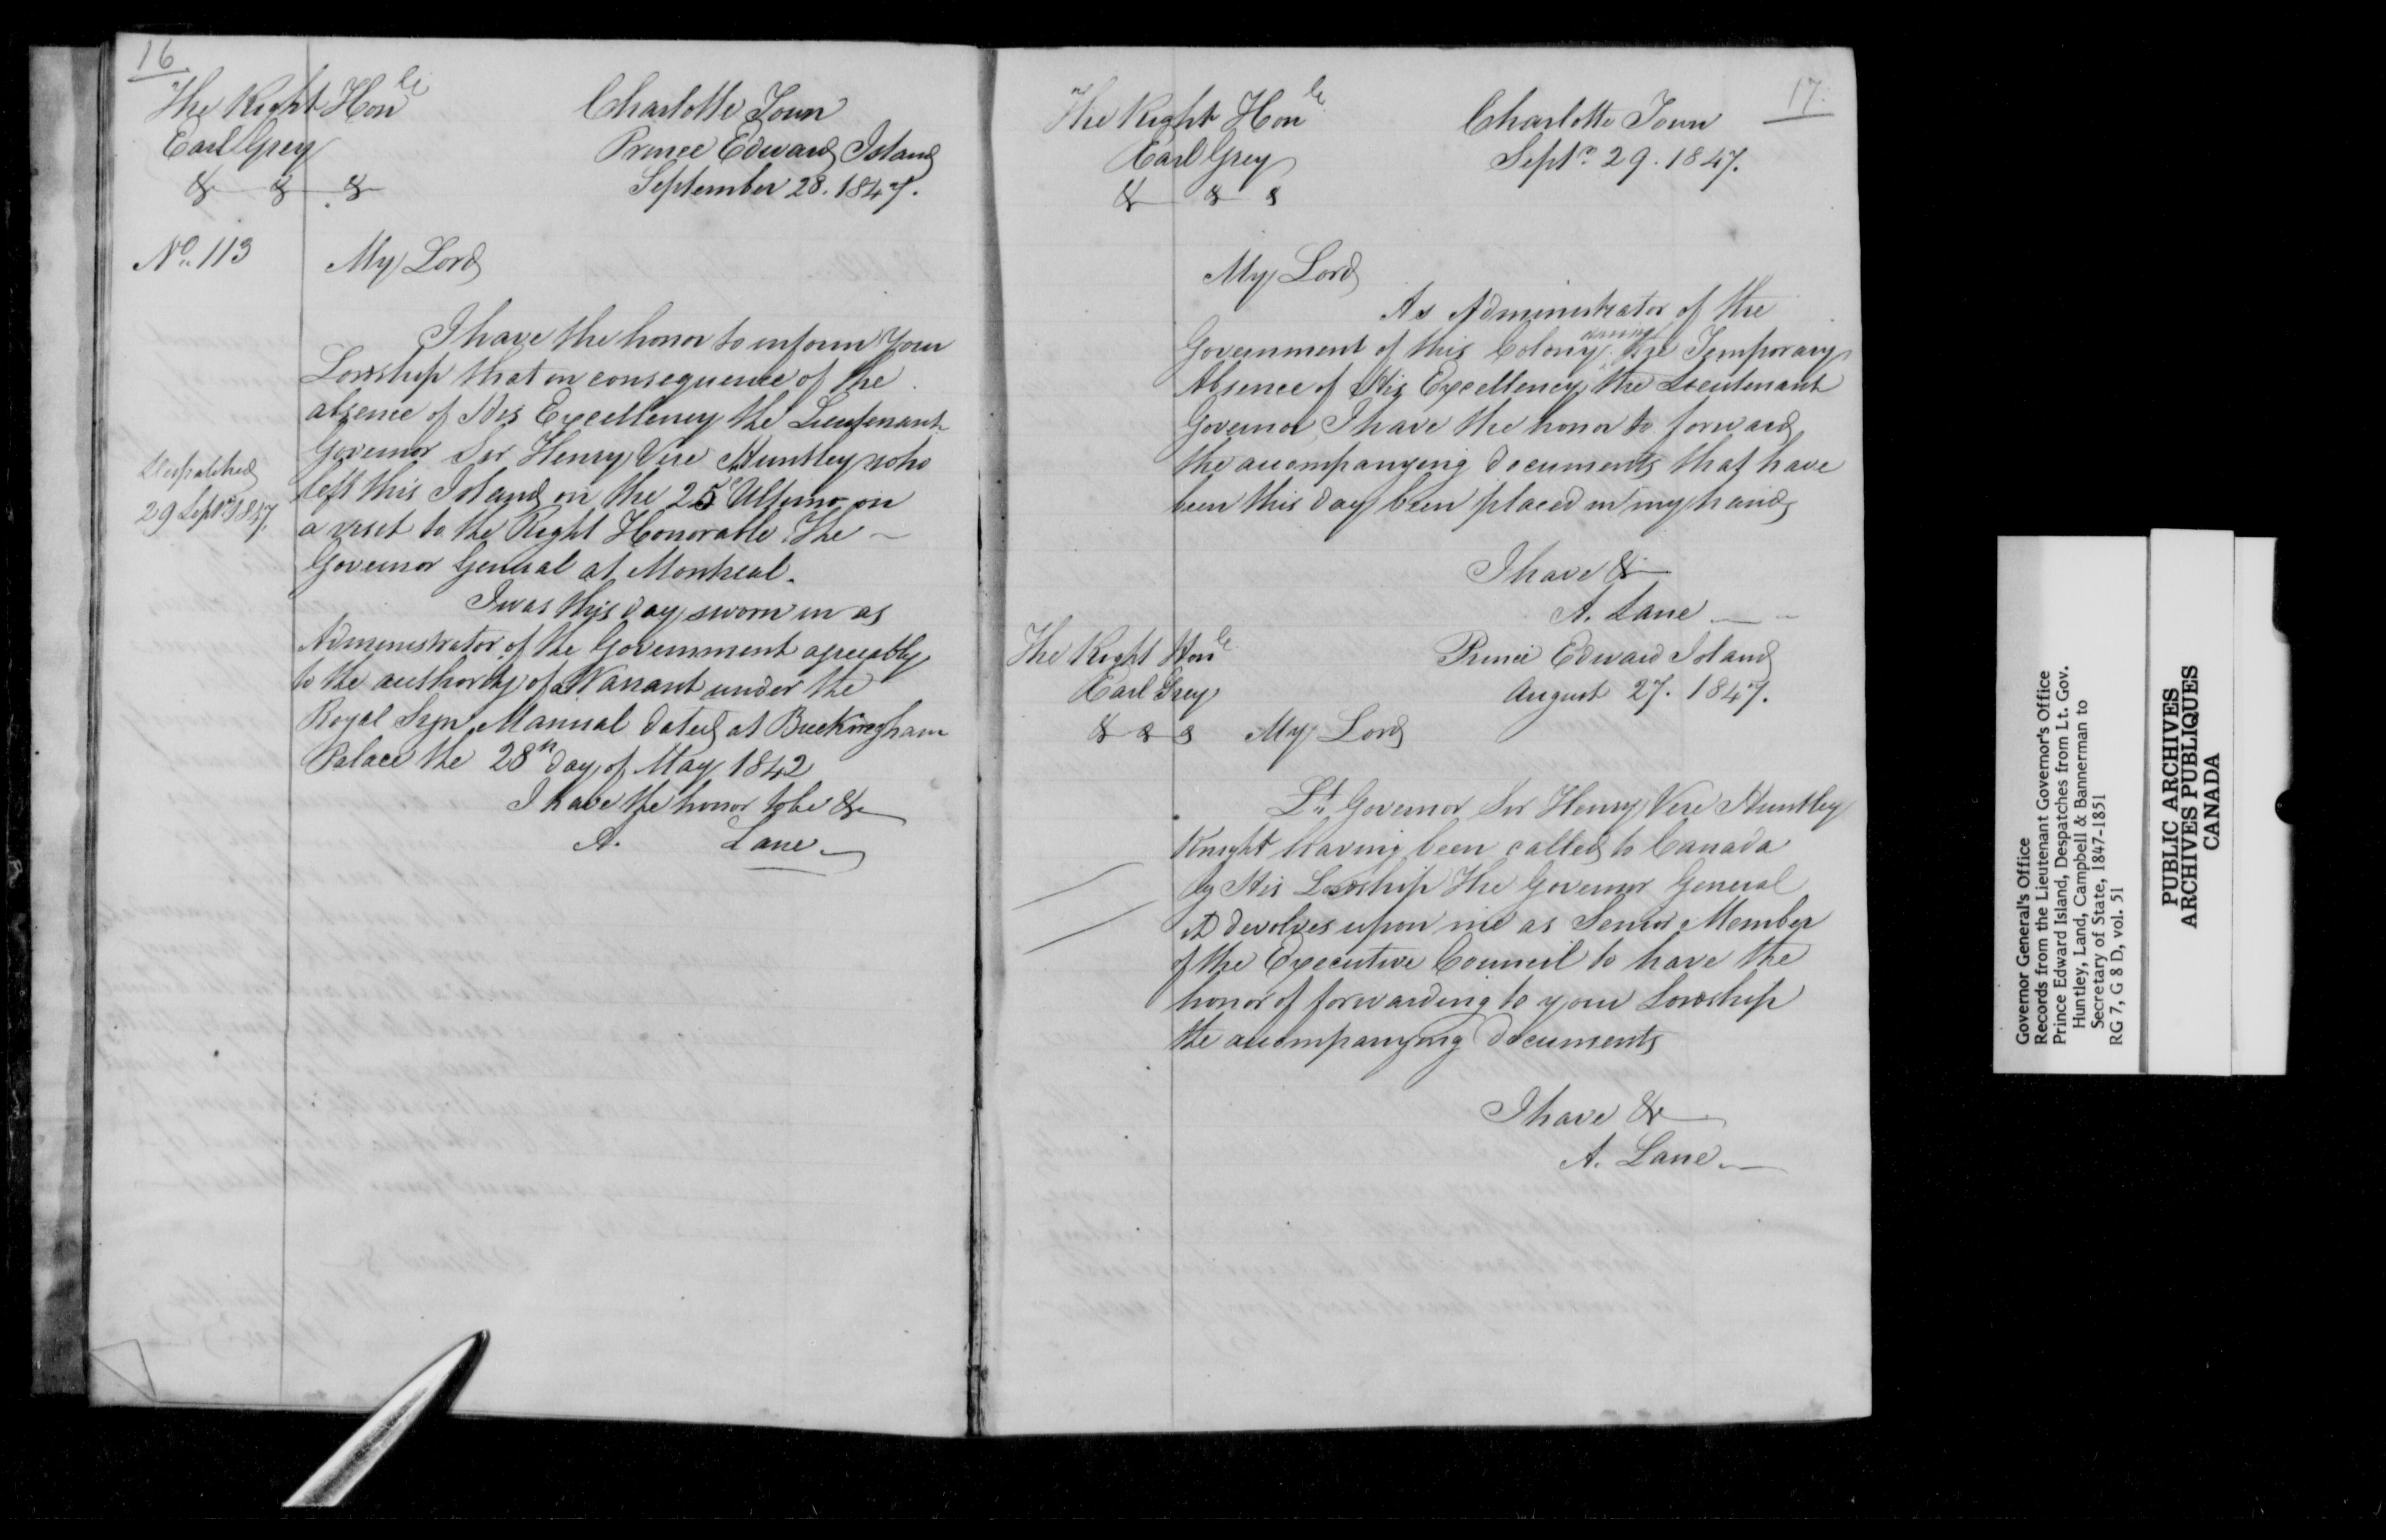 16
The Right Honle
Earl Grey
& & &
Charlotte Town
Prince Edward Island
September 28. 1847.
No. 113
My Lord
I have the honor to inform Your
Lordship that in consequence of the
absence of His Excellency the Lieutenant
Governor Sir Henry Vere Huntley who
left this Island on the 25 Ultimo on
a visit to the Right Honorable The
Governor General at Montreal.
Despatched
29 Septr 1847.
I was this day sworn in as
Administrator of the Government agreeably
to the authority of a Warrant under the
Royal Sign Manual dated at Buckingham
Palace the 28th day of May 1842
I have the honor to be &c
A. Lane
17.
The Right Honle
Earl Grey
& & &
Charlotte Town
Septr. 29. 1847.
My Lord
As Administrator of the
Government of this Colony during the Temporary
Absence of His Excellency the Lieutenant
Governor I have the honor to forward
the accompanying documents that have
been this day been placed in my hands
I have &c
A. Lane
The Right Honle
Earl Grey
& & &
Prince Edward Island
August 27. 1847.
My Lord
Lt. Governor Sir Henry Vere Huntley
Knight having been called to Canada
by His Lordship The Governor General
it devolves upon me as Senior Member
of the Executive Council to have the
honor of forwarding to your Lordship
the accompanying documents
I have &c
A. Lane
Governor General's Office
Records from the Lieutenant Governor's Office
Prince Edward Island, Despatches from Lt. Gov.
Huntley, Land, Campbell & Bannerman to
Secretary of State, 1847-1851
RG 7, G 8 D, vol. 51
PUBLIC ARCHIVES
ARCHIVES PUBLIQUES
CANADA